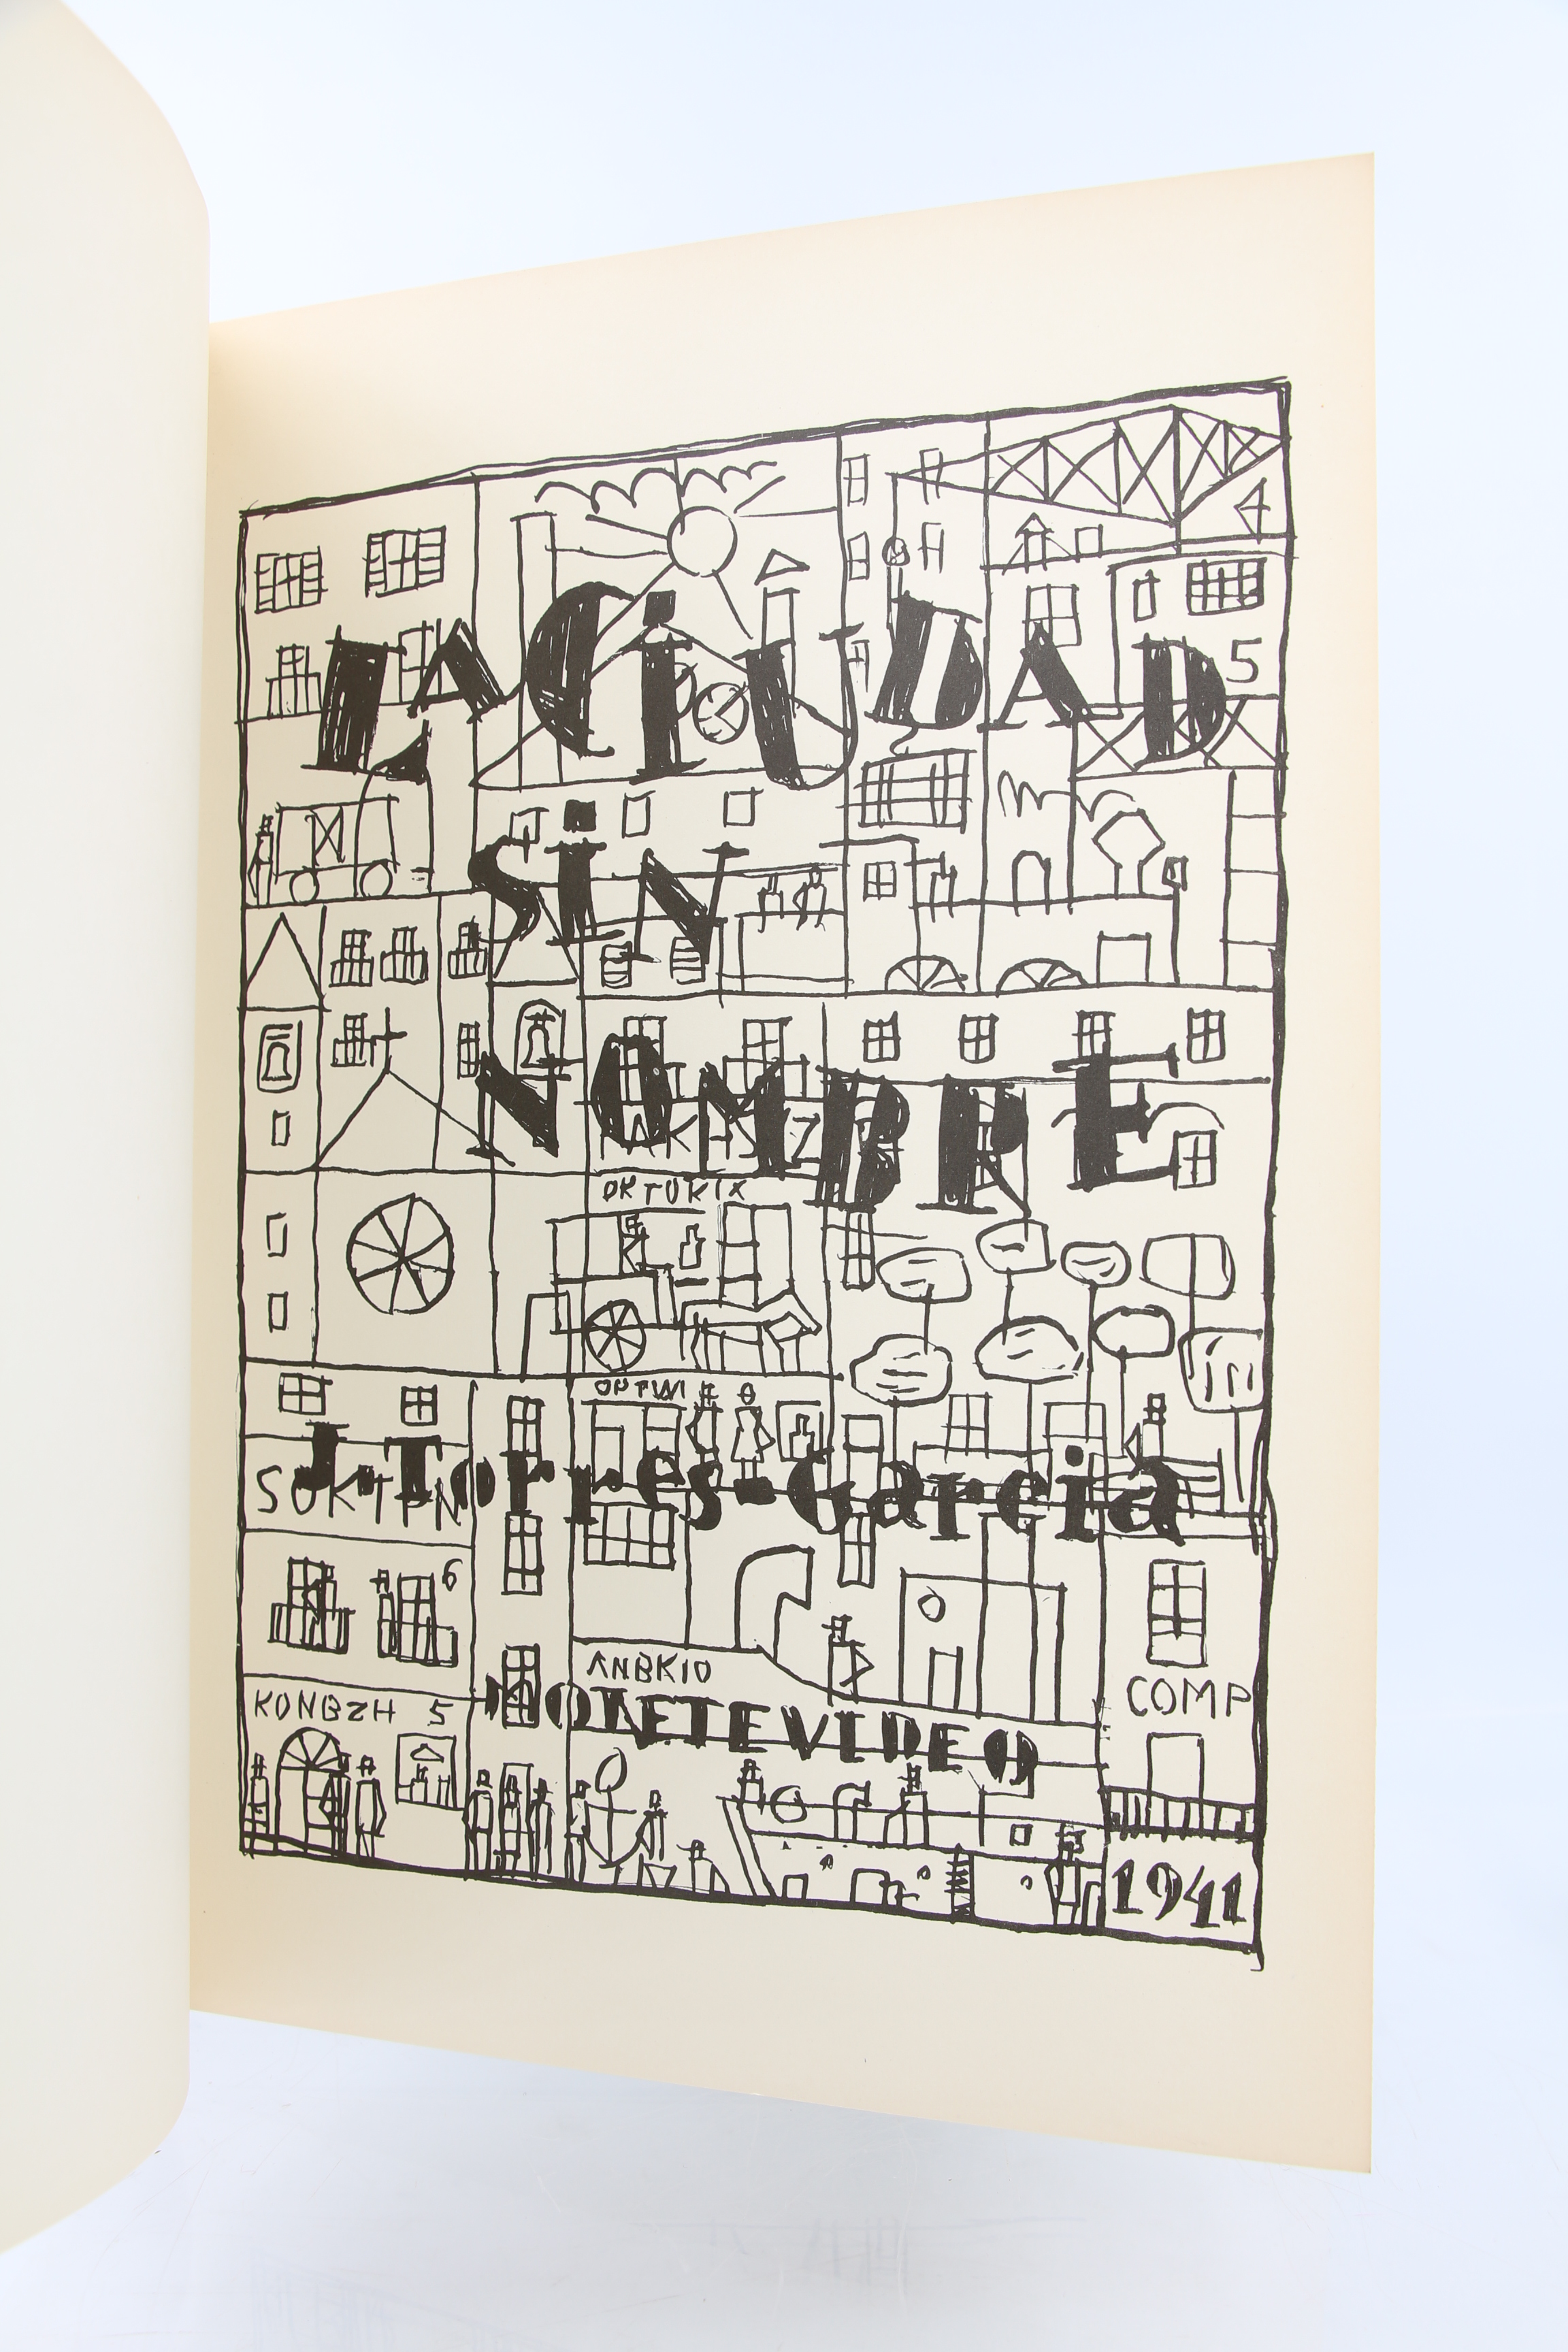 4
LA CiUDAD
5
SiN
NOMBRE
OPTWI
J. Torres-García
SOKTPN
6
ANBKIO
COMP
KONBZH 5
MONTEVIDEO
1941